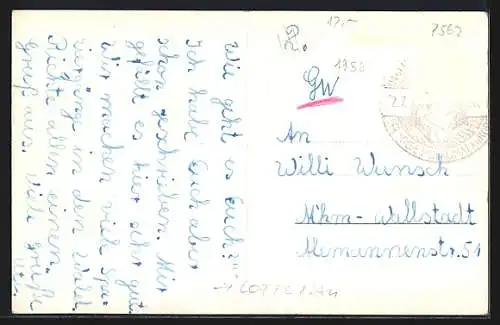 Wie geht es Euch?
Ich habe Euch aber
schon geschrieben. Mir
gefällt es hier sehr gut.
Wir machen viel Spa-
ziergänge in den Wald.
Richte allen einen
Gruß aus. Viele Grüße
12.-
7562
1958
GW
22
An
Willi Wunsch
M'hm-Wallstadt
Alemannenstr. 51